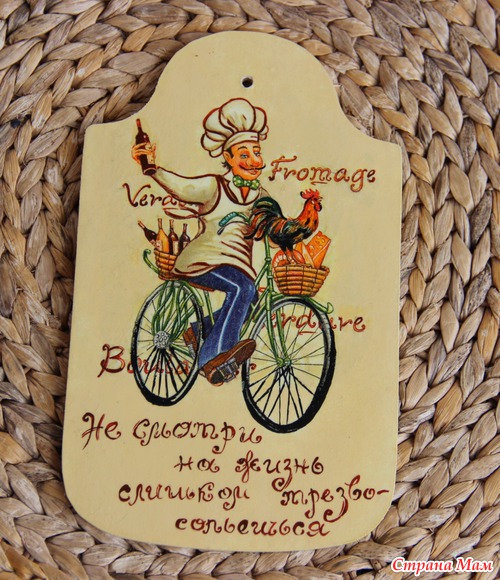 Fromage
Не смотри
на жизнь
слишком трезво-
сопьешься
Страна Мам